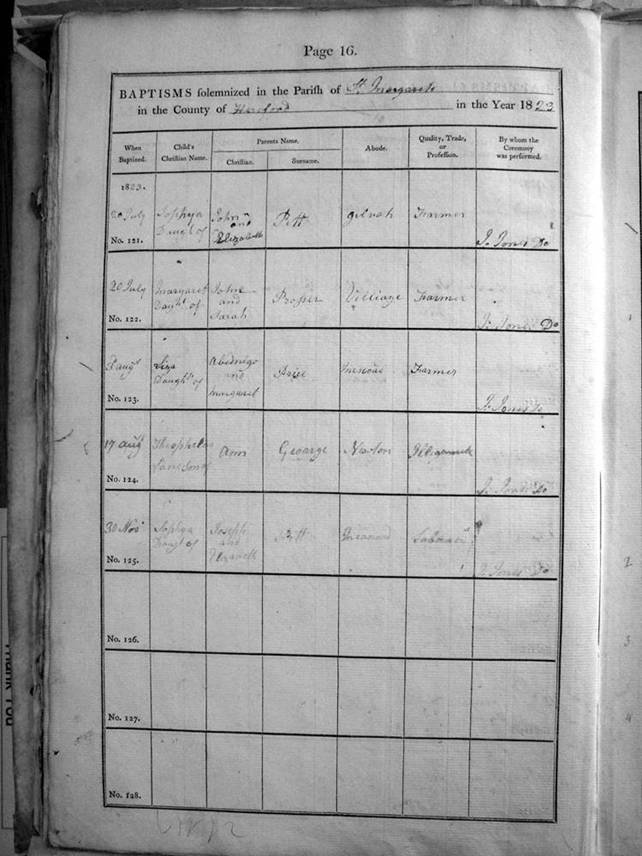 Page 16.
BAPTISMS solemnized in the Parish of St. Margarets
in the County of Hereford in the Year 1823
When Baptized.
Child's Christian Name.
Parents Name.
Christian.
Surname.
Abode.
Quality, Trade, or Profession.
By whom the Ceremony was performed.
1823.
20 July
No. 121.
Sophya
Daught of
John
and
Elizabeth
Pitt
Farmer
J. Jones Do
20 July
No. 122.
Margaret
Daught of
John
and
Sarah
Prosser
Villiage
Farmer
J. Jones Do
Augt
No. 123.
Daught of
Abednigo
and
Margaret
Price
Farmer
J. Jones Do
17 Augt
No. 124.
Theophelus
Ann
Gearge
Newton
J. Jones Do
30 Novr
No. 125.
Sophya
Daught of
Joseph
and
Elizabeth
Pitt
Labourer
J. Jones Do
No. 126.
No. 127.
No. 128.